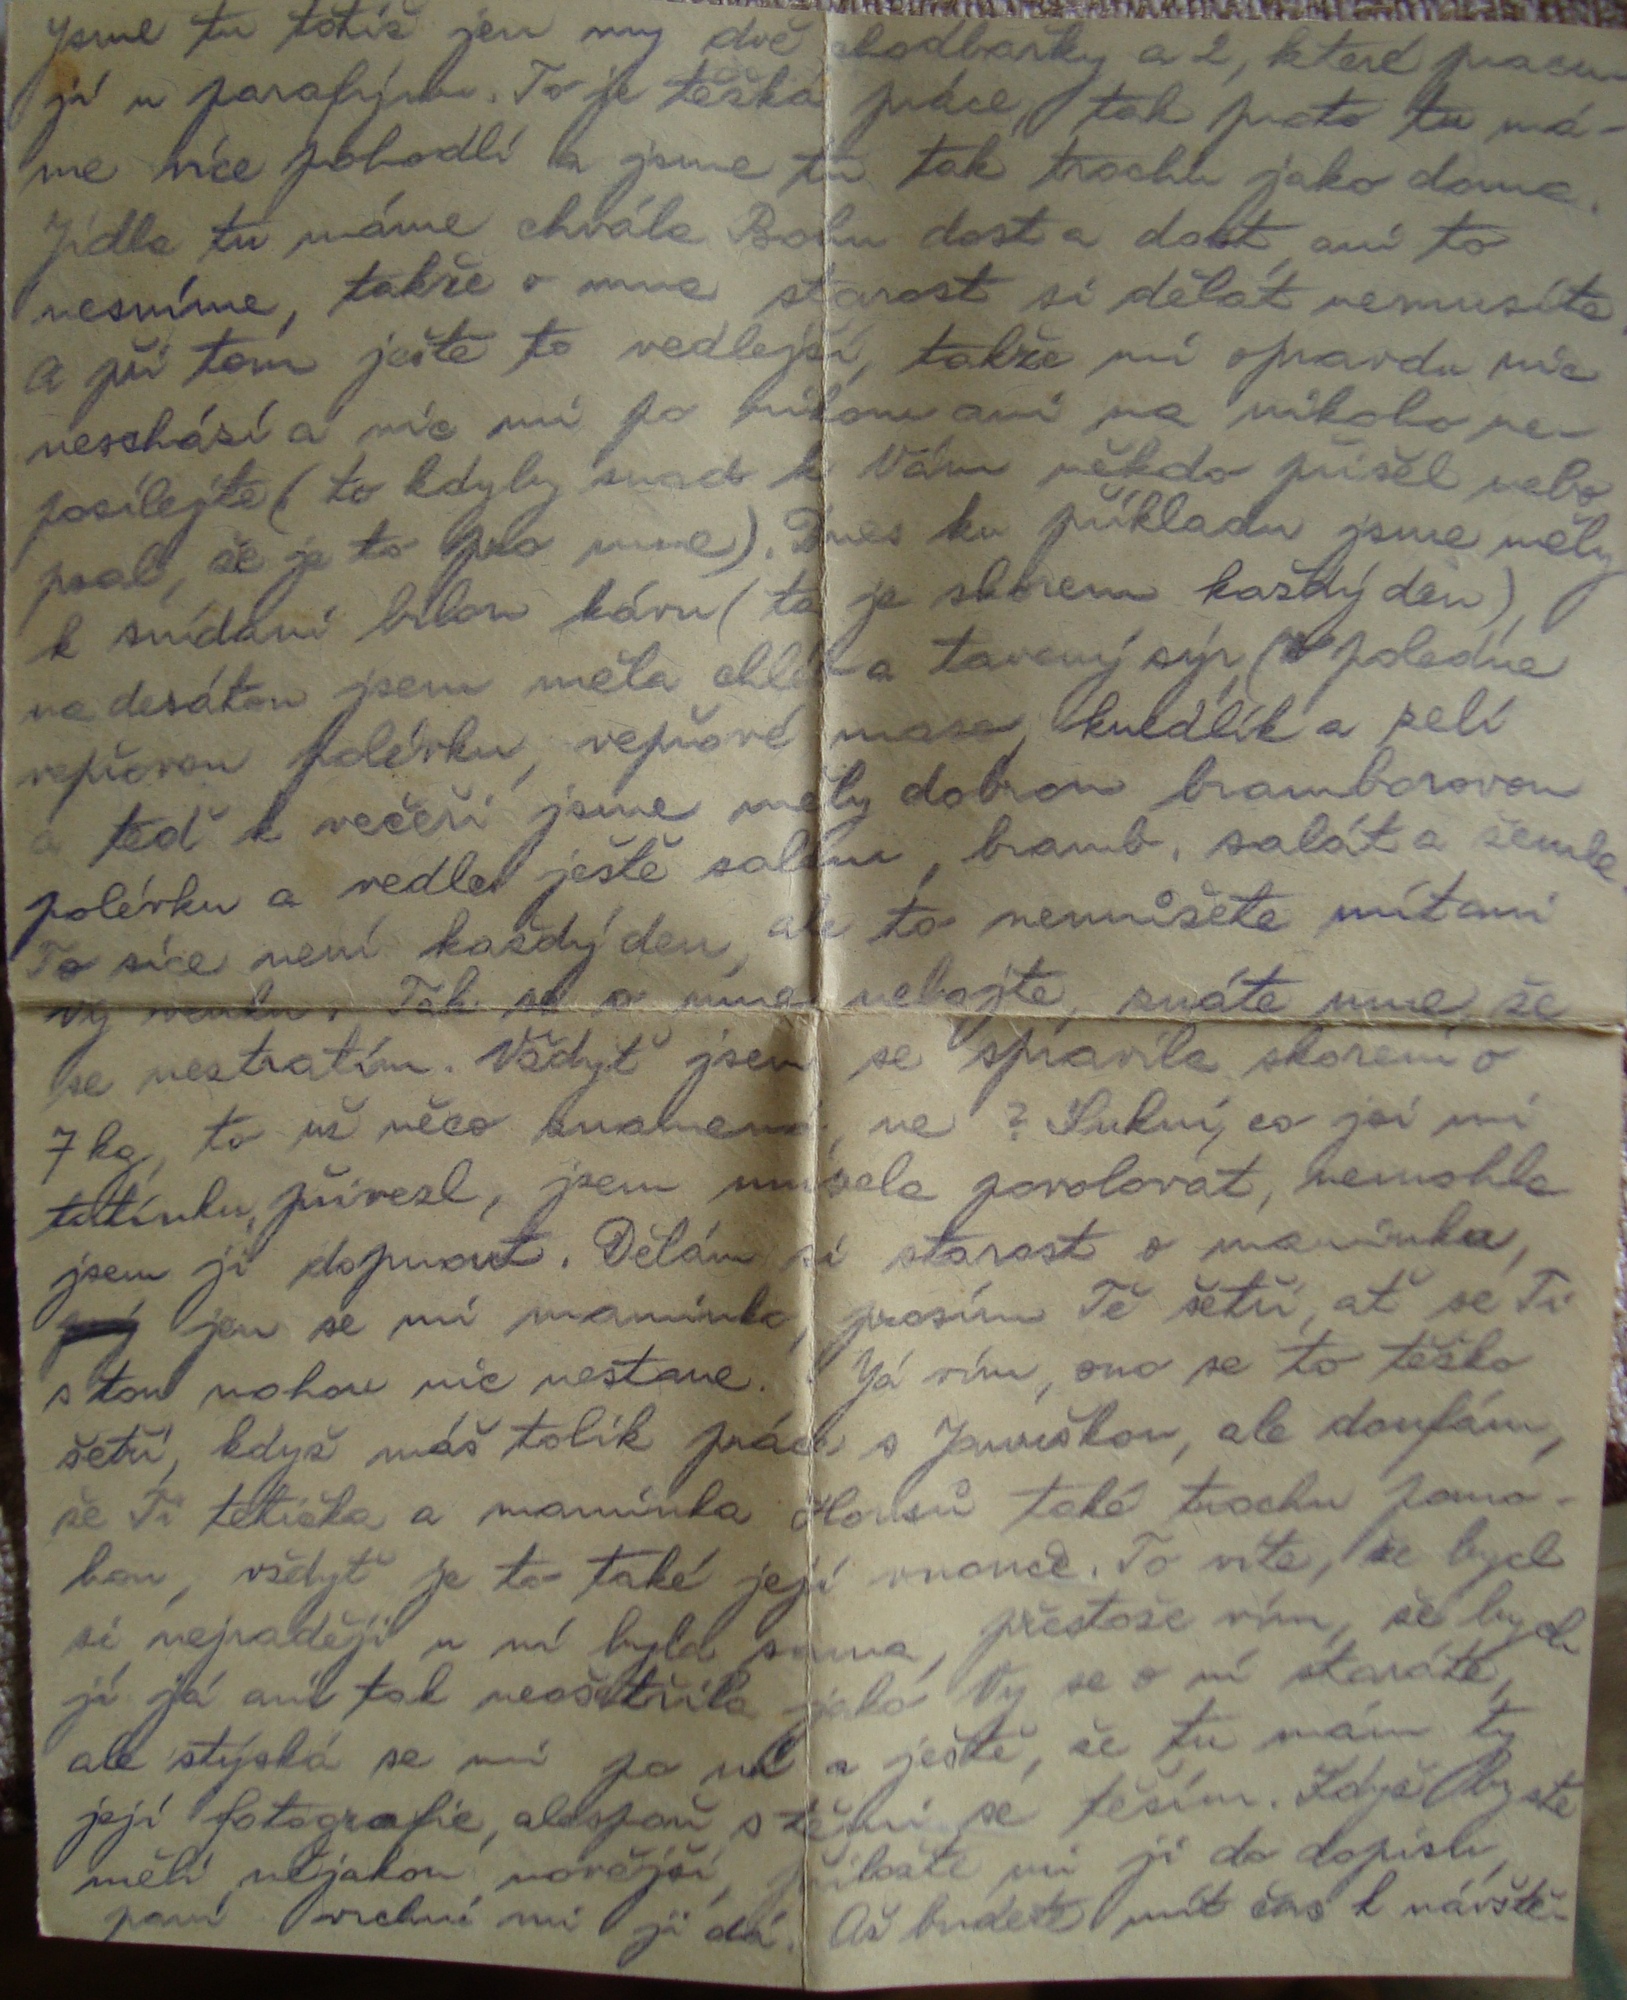 Jsme tu totiž jen my dvě chodbařky a 2, které pracu-
jí u parafínu. To je těžká práce, tak proto tu má-
me více pohodlí a jsme tu tak trochu jako doma.
Jídla tu máme chvála Bohu dost a dost, ani to
nesníme, takže o mne starost si dělat nemusíte.
A při tom ješte to vedlejší, takže mi opravdu nic
neschází a nic mi po nikom ani na nikoho ne-
posílejte (to kdyby snad k Vám někdo přišel nebo
psal, že je to pro mne). Dnes ku příkladu jsme měly
k snídani bílou kávu (ta je skorem každý den),
na desátou jsem měla chléb a tavený sýr, v poledne
vepřovou polévku, vepřové maso, knedlík a zelí
a teď k večeři jsme měly dobrou bramborovou
polévku a vedle ještě salám, bramb. salát a žemle.
To sice není každý den, ale to nemůžete mít ani
Vy venku. Tak se o mne nebojte, znáte mne, že
se neztratím. Vždyť jsem se spravila skorem o
7 kg, to už něco znamená, ne? Sukni, co jsi mi
tatínku, přivezl, jsem musela povolovat, nemohla
jsem ji dopnout. Dělám si starost o maminku,
jen se mi maminko, prosím Tě šetři, ať se Ti
s tou nohou nic nestane. Já vím, ono se to těžko
šetří, když máš tolik práce s Jaruškou, ale doufám,
že Ti tetička a maminka také trochu pomo-
hou, vždyť je to také její vnouče. To víte, že bych
si nejraději u ní byla sama, přestože vím, že bych
jí já ani tak neošetřila jako Vy se o ní staráte,
ale stýská se mi po ní a ještě, že tu mám ty
její fotografie, alespoň s těmi se těším. Když byste
měli nějakou novější, přiložte mi ji do dopisu,
paní vrchní mi ji dá. Až budete mít čas k návště-